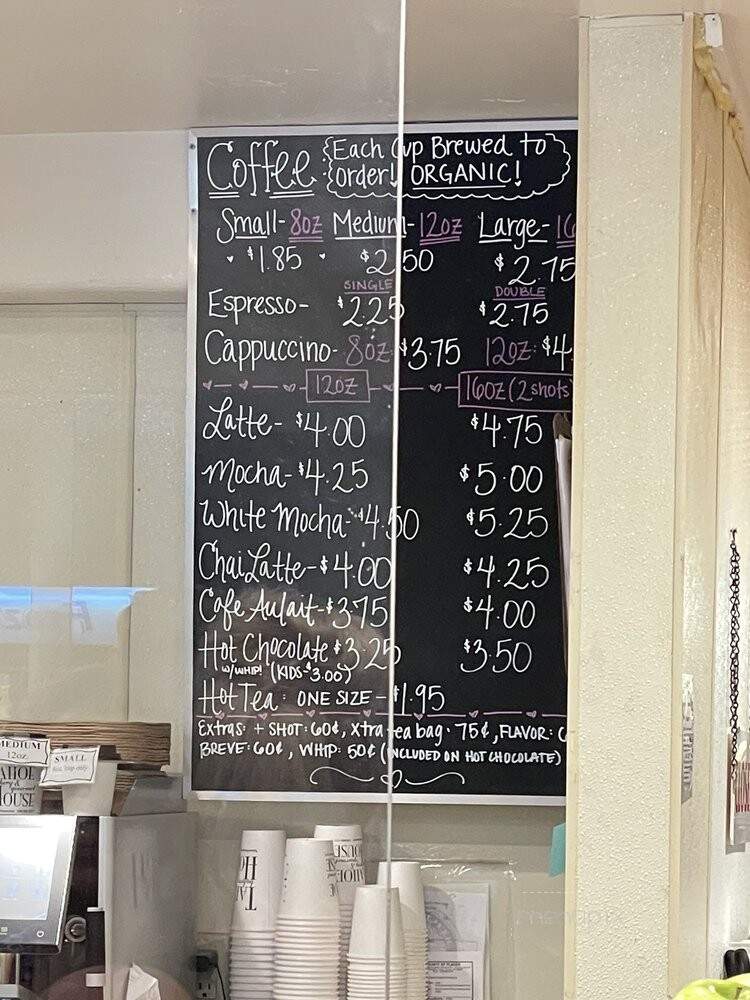 Coffee Each Cup Brewed to
order! ORGANIC!
Small- 8oz Medium- 12oz Large- 16
$1.85 $2.50 $2.75
SINGLE DOUBLE
Espresso- $2.25 $2.75
Cappuccino- 8oz: $3.75 12oz: $4.
12oz 16oz (2 shots
Latte- $4.00 $4.75
Mocha- $4.25 $5.00
White Mocha- $4.50 $5.25
Chai Latte- $4.00 $4.25
Cafe Au lait- $3.75 $4.00
Hot Chocolate $3.25 $3.50
w/WHIP! (KIDS-$3.00)
Hot Tea: ONE SIZE - $1.95
Extras: + SHOT: 60¢, Xtra tea bag: 75¢, FLAVOR:
BREVE: 60¢, WHIP: 50¢ (INCLUDED ON HOT CHOCOLATE)
MEDIUM
12oz
SMALL
HOUSE